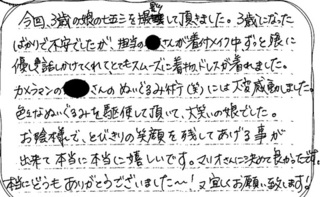 今回、3歳の娘の七五三を撮影して頂きました。3歳になった
ばかりで不安でしたが、担当の●さんが着付メイク中ずっと娘に
優しく話しかけてくれてとてもスムーズに着物、ドレスが着れました。
カメラマンの●さんのぬいぐるみ(笑)には大変感動しました。
色々なぬいぐるみを駆使して頂いて、大笑いの娘でした。
お陰様で、とびきりの笑顔を残してあげる事が
出来て本当に本当に嬉しいです。マリオさんに決めて良かったです。
本当にどうもありがとうございました〜!又宜しくお願い致します!